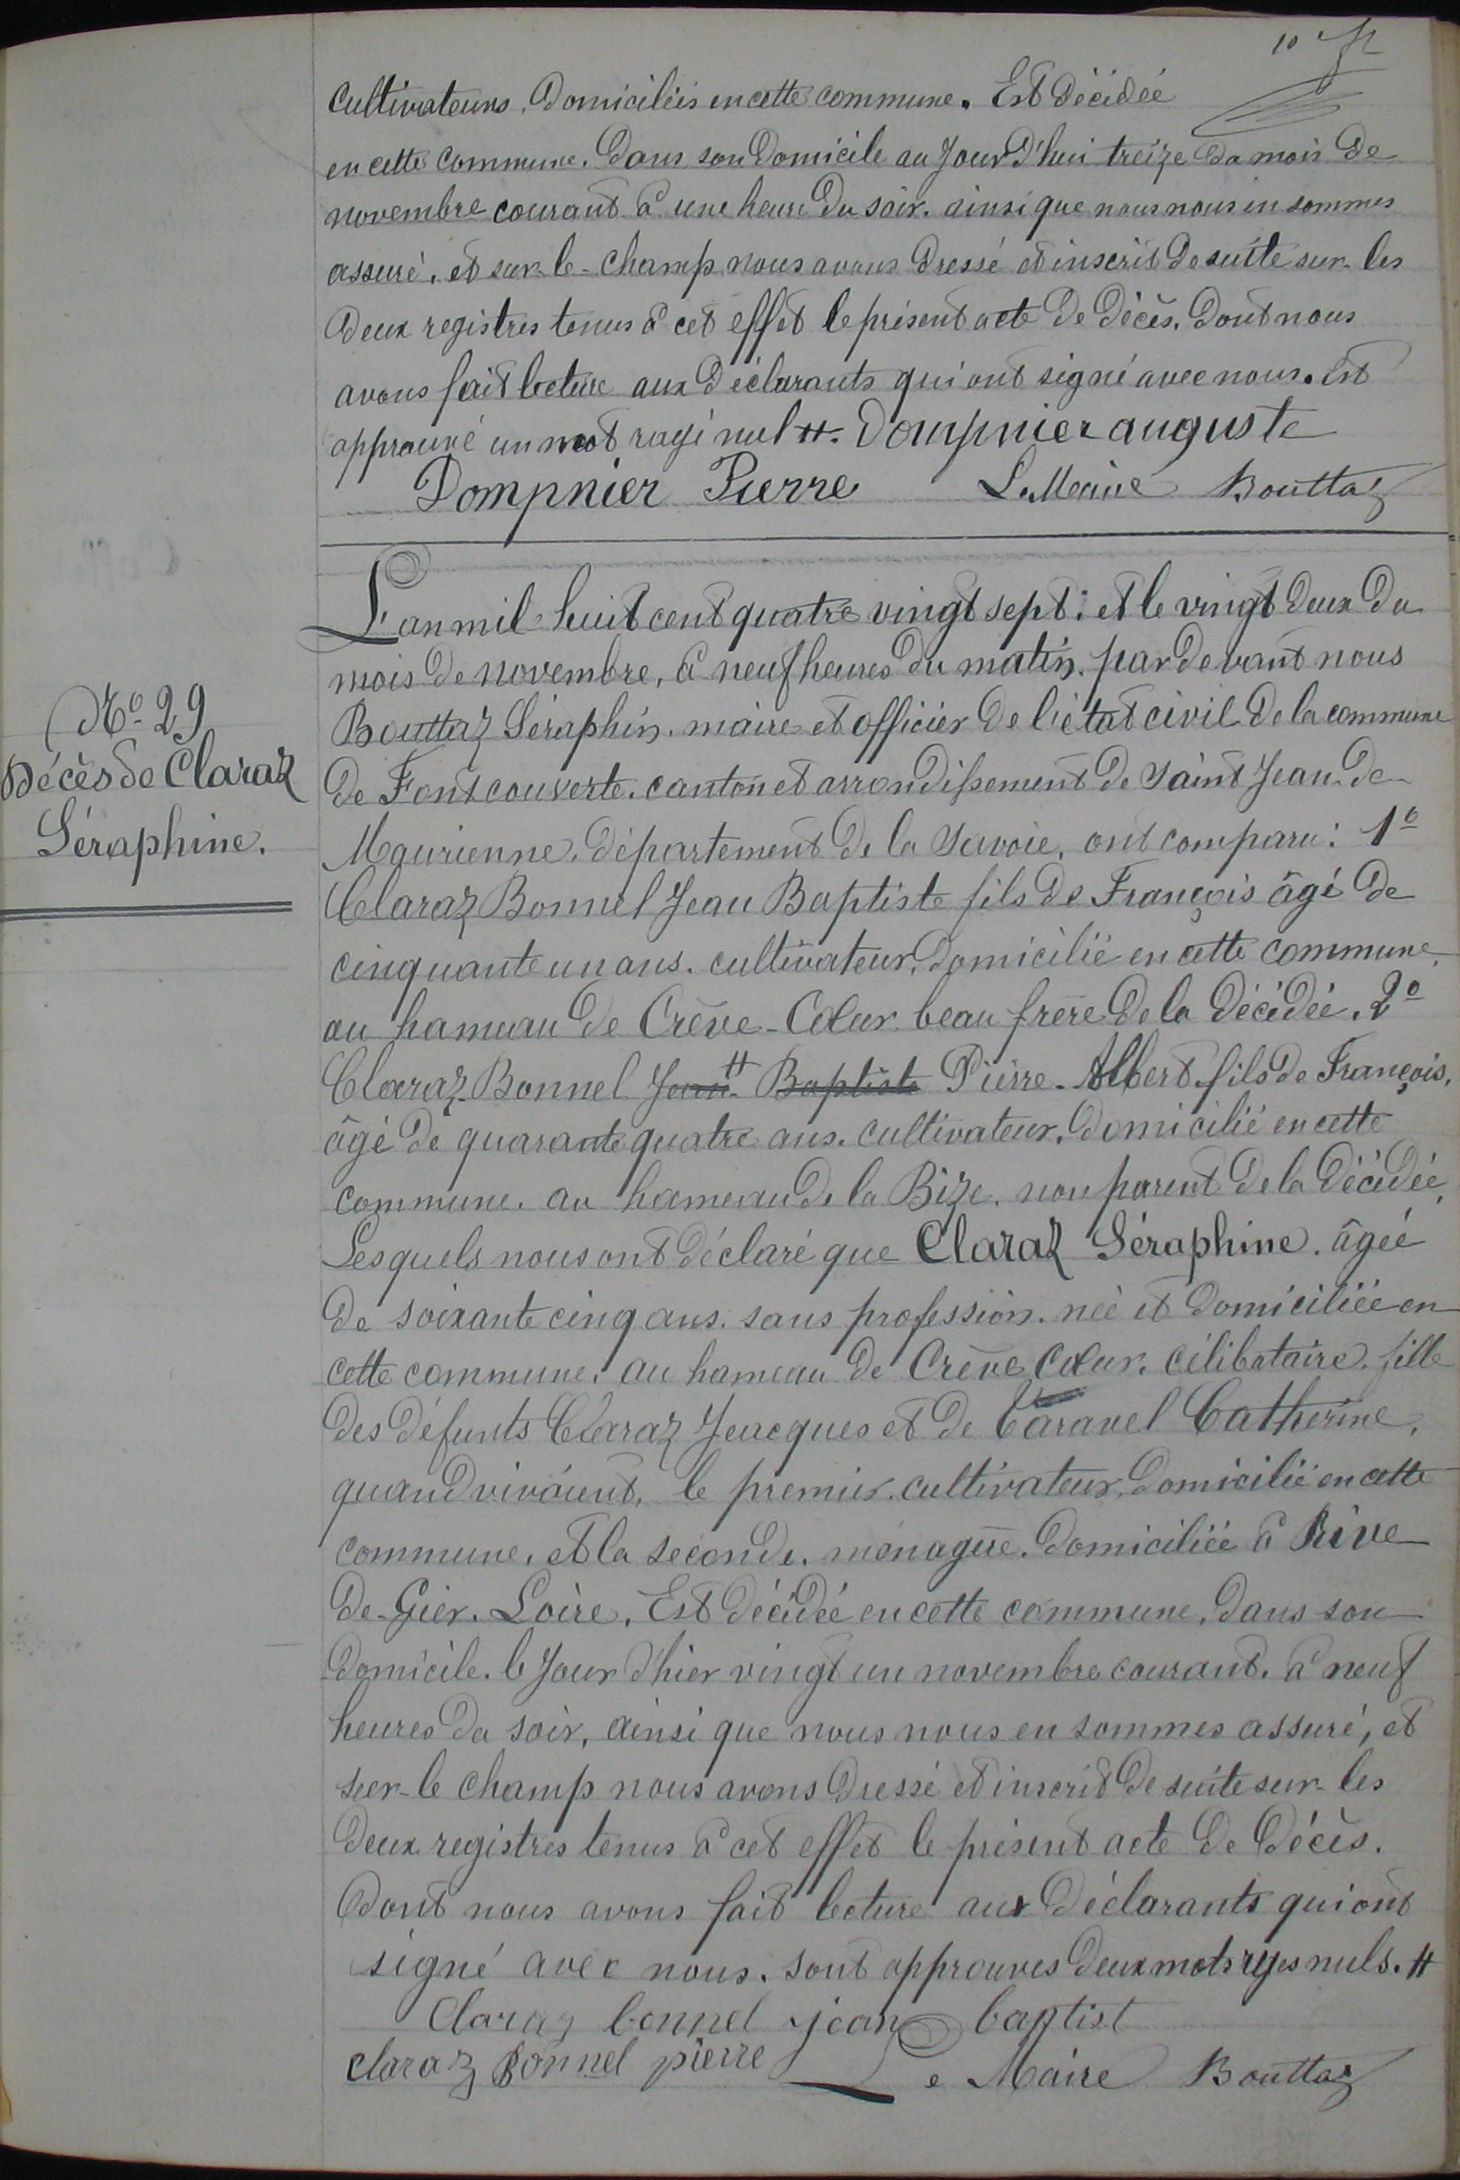 10
cultivateurs, domiciliés en cette commune. Est décédée
en cette commune. dans son domicile au jour d'hui treize du mois de
novembre courant à une heure du soir. ainsi que nous nous en sommes
assuré, et sur-le-champ nous avons dressé et inscrit de suite sur les
deux registres tenus à cet effet le présent acte de décès. dont nous
avons fait lecture aux déclarants qui ont signé avec nous. Est
approuvé un mot rayé nul #. Dompnier auguste
Dompnier Pierre Le Maire Bouttaz
L'an mil huit cent quatre vingt sept: et le vingt deux du
mois de novembre, à neuf heures du matin. par devant nous
Bouttaz Séraphin. maire et officier de l'état civil de la commune
N° 29
Décès de Claraz
Séraphine.
de Fontcouverte. canton et arrondissement de Saint Jean-de-
Maurienne, département de la Savoie, ont comparu: 1°
Claraz Bonnel Jean Baptiste fils de François âgé de
cinquante un ans. cultivateur, domicilié en cette commune,
au hameau de Crève-Cœur. beau frère de la décédée. 2°
Claraz-Bonnel Jean # Baptiste Pierre-Albert fils de François,
âgé de quarante quatre ans. cultivateur, domicilié en cette
commune. au hameau de la Bize. non parent de la décédée,
Lesquels nous ont déclaré que Claraz Séraphine. âgée
de soixante cinq ans. sans profession. née et domiciliée en
cette commune. au hameau de Crève Cœur. célibataire. fille
des défunts Claraz Jeacques et de Varavel Catherine,
quand vivaient, le premier. cultivateur, domicilié en cette
commune, et la seconde. ménagère. domiciliée à Rive
de-Gier. Loire. Est décédée en cette commune, dans son
domicile. le jour d'hier vingt un novembre courant. à neuf
heures du soir, ainsi que nous nous en sommes assuré, et
sur-le champ nous avons dressé et inscrit de suite sur les
deux registres tenus à cet effet le présent acte de décès.
dont nous avons fait lecture aux déclarants qui ont
signé avec nous. sont approuvés deux mots rayes nuls. #
Claraz bonnel jean baptist
claraz Bonnel pierre Le Maire Bouttaz